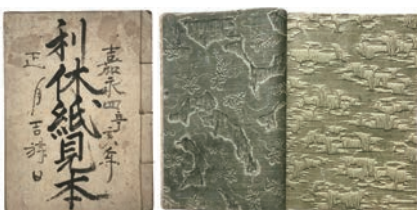 嘉永四辛亥年
利休紙見本
正月吉祥日